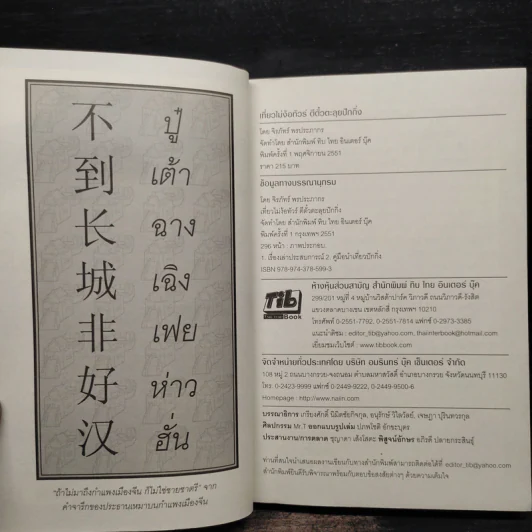 不 ปู๋
到 เต้า
长 ฉาง
城 เฉิง
非 เฟย
好 ห่าว
汉 ฮั่น
"ถ้าไม่มาถึงกำแพงเมืองจีน ก็ไม่ใช่ชายชาตรี" จาก
คำจารึกของประธานเหมาบนกำแพงเมืองจีน
เที่ยวไม่ง้อทัวร์ ตีตั๋วตะลุยปักกิ่ง
โดย จิรภัทร์ พรประภากร
จัดทำโดย สำนักพิมพ์ ทิบ ไทย อินเตอร์ บุ๊ค
พิมพ์ครั้งที่ 1 พฤศจิกายน 2551
ราคา 215 บาท
ข้อมูลทางบรรณานุกรม
โดย จิรภัทร์ พรประภากร
เที่ยวไม่ง้อทัวร์ ตีตั๋วตะลุยปักกิ่ง
จัดทำโดย สำนักพิมพ์ ทิบ ไทย อินเตอร์ บุ๊ค
พิมพ์ครั้งที่ 1 กรุงเทพฯ:2551
296 หน้า : ภาพประกอบ
1. เรื่องเล่าประสบการณ์ 2. คู่มือนำเที่ยวปักกิ่ง
ISBN 978-974-378-599-3
Tib
Book
ห้างหุ้นส่วนสามัญ สำนักพิมพ์ ทิบ ไทย อินเตอร์ บุ๊ค
299/201 หมู่ที่ 4 หมู่บ้านวิสต้าปาร์ค วิภาวดี ถนนวิภาวดี-รังสิต
แขวงตลาดบางเขน เขตหลักสี่ กรุงเทพฯ 10210
โทรศัพท์ 0-2551-7792, 0-2551-7814 แฟกซ์ 0-2973-3385
แนะนำติชม : editor_tib@yahoo.com, thaiinterbook@hotmail.com
เยี่ยมชมเว็บไซต์ : www.tibbook.com
จัดจำหน่ายทั่วประเทศโดย บริษัท อมรินทร์ บุ๊ค เซ็นเตอร์ จำกัด
108 หมู่ 2 ถนนบางกรวย-จงถนอม ตำบลมหาสวัสดิ์ อำเภอบางกรวย จังหวัดนนทบุรี 11130
โทร. 0-2423-9999 แฟกซ์ 0-2449-9222, 0-2449-9500-6
Homepage : http://www.naiin.com
บรรณาธิการ เกรียงศักดิ์ นิมิตชัยกิจกุล, อนุรักษ์ วิไลวัลย์, เจษฎา บุรินทวรกุล
ศิลปกรรม Mr.T ออกแบบรูปเล่ม ปกพโชติ อักขะบุตร
ประสานงาน/การตลาด ชุญาดา เส็งโสตะ พิสูจน์อักษร อภิรดี ปลายกระสินธุ์
ท่านที่สนใจนำเสนอผลงานเขียนกับทางสำนักพิมพ์สามารถติดต่อได้ที่ editor_tib@yahoo.com
สำนักพิมพ์ยินดีรับพิจารณาพร้อมกับตอบข้อสงสัยต่างๆ ด้วยความเต็มใจ